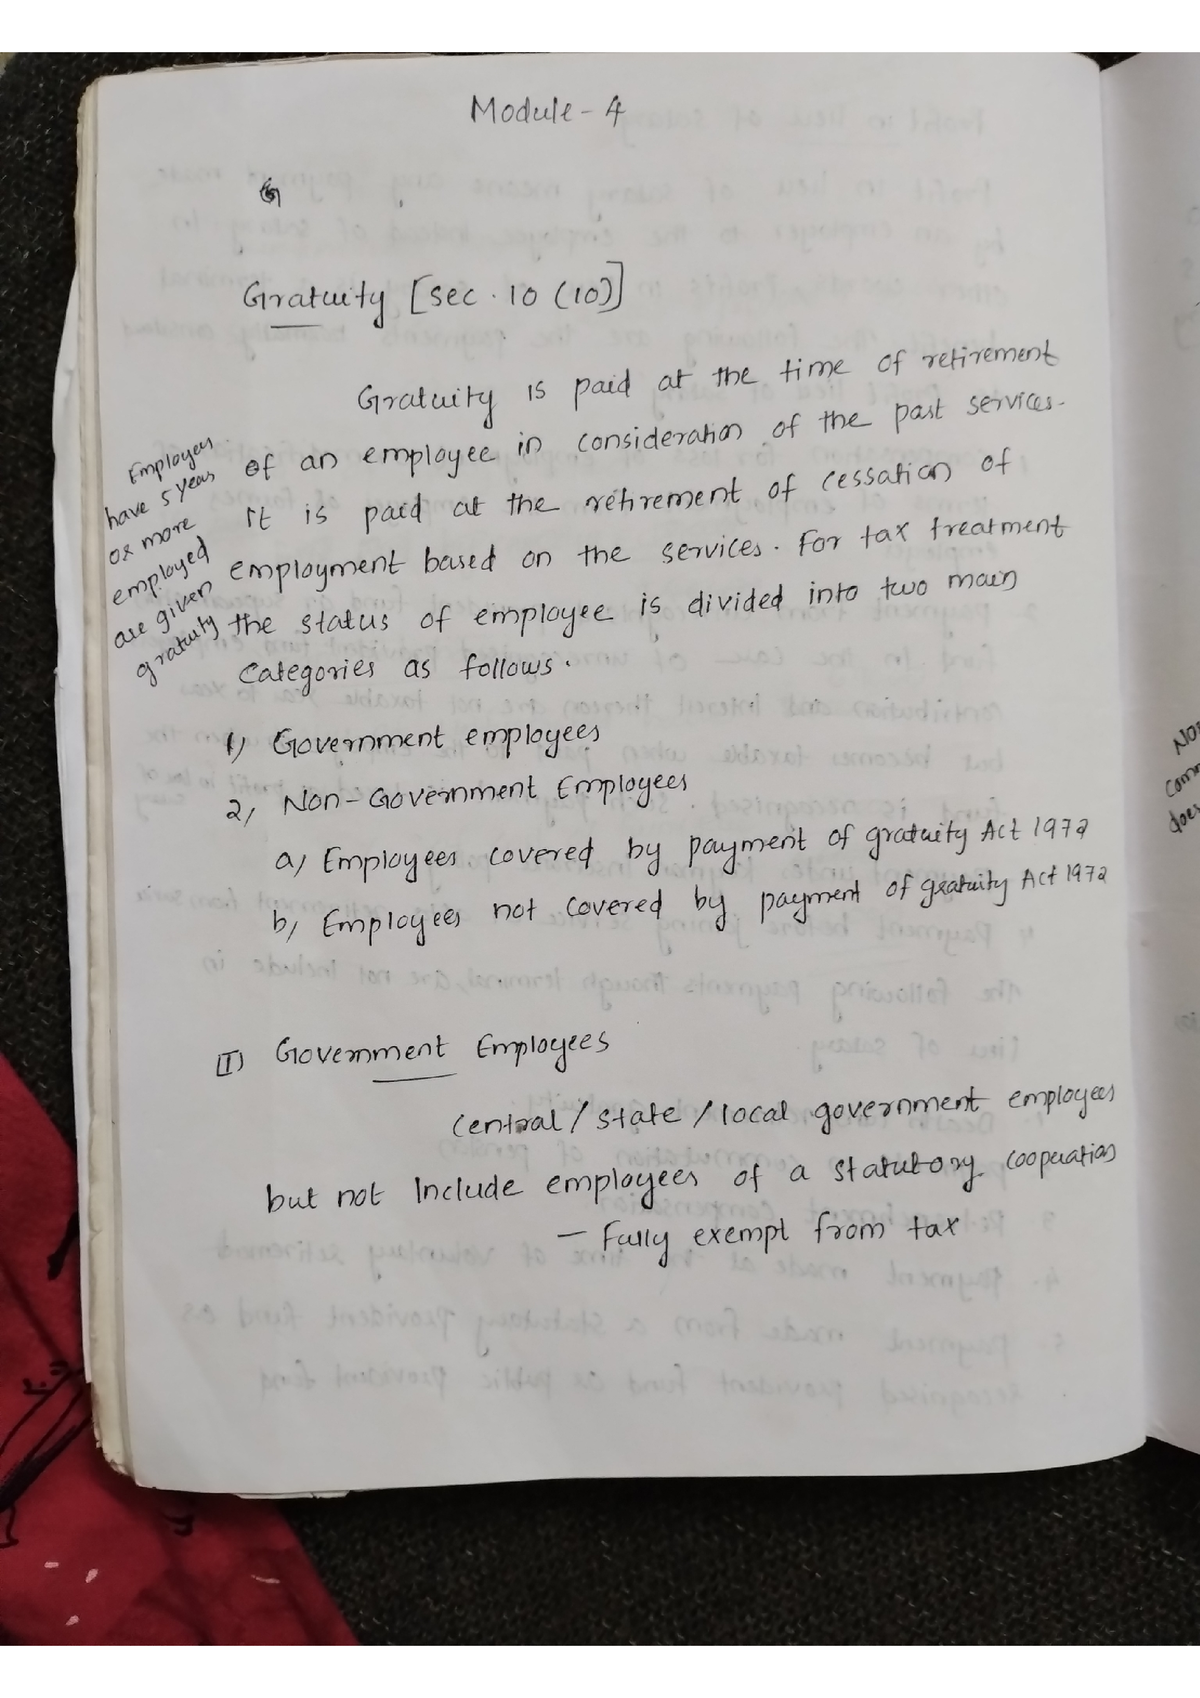 Module - 4
Gratuity [sec. 10 (10)]
Gratuity is paid at the time of retirement
of an employee in consideration of the past services.
It is paid at the retirement of cessation of
employment based on the services. For tax treatment
the status of employee is divided into two main
categories as follows.
Employees
have 5 years
or more
employed
are given
gratuity
1) Government employees
2) Non-Government Employees
a) Employees covered by payment of gratuity Act 1972
b) Employees not covered by payment of gratuity Act 1972
(I) Government Employees
Central / state / local government employees
but not Include employees of a statutory cooperation
— Fully exempt from tax